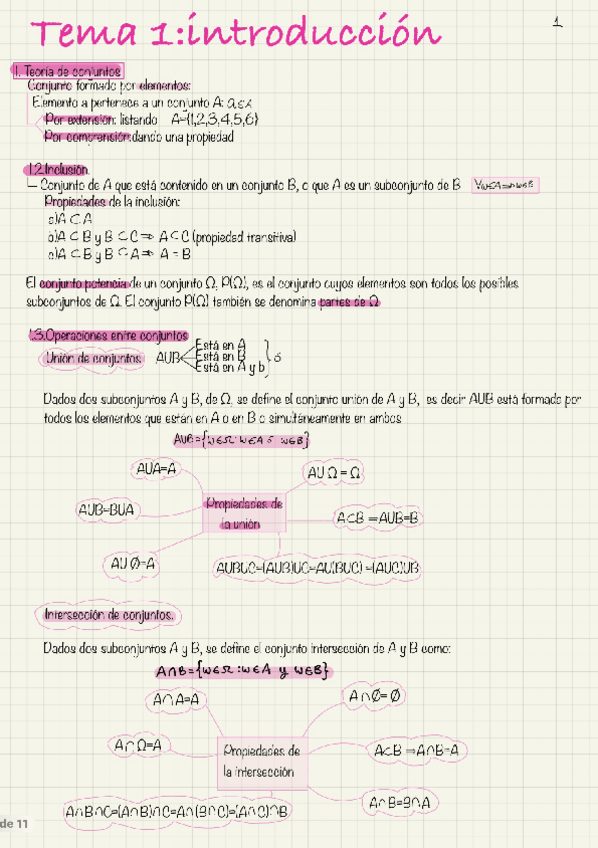 Tema 1:introducción
1
1. Teoría de conjuntos
Conjunto formado por elementos:
Elemento a pertenece a un conjunto A: a∈A
Por extensión: listando A={1,2,3,4,5,6}
Por comprensión:dando una propiedad
1.2.Inclusión.
Conjunto de A que está contenido en un conjunto B, o que A es un subconjunto de B ∀w∈A⇒w∈B
Propiedades de la inclusión:
a)A⊂A
b)A⊂B y B⊂C⇒A⊂C (propiedad transitiva)
c)A⊂B y B⊂A⇒A=B
El conjunto potencia de un conjunto Ω, P(Ω), es el conjunto cuyos elementos son todos los posibles
subconjuntos de Ω. El conjunto P(Ω) también se denomina partes de Ω
1.3.Operaciones entre conjuntos
Unión de conjuntos AUB
Está en A
Está en B
Está en A y b
ó
Dados dos subconjuntos A y B, de Ω, se define el conjunto unión de A y B, es decir AUB está formada por
todos los elementos que están en A o en B o simultáneamente en ambos
AUB={w∈Ω:w∈A ó w∈B}
AUA=A
AUΩ=Ω
AUB=BUA
Propiedades de
la unión
A⊂B⇒AUB=B
AUØ=A
AUBUC=(AUB)UC=AU(BUC)=(AUC)UB
Intersección de conjuntos.
Dados dos subconjuntos A y B, se define el conjunto intersección de A y B como:
A∩B={w∈Ω:w∈A y w∈B}
A∩A=A
A∩Ø=Ø
A∩Ω=A
Propiedades de
la intersección
A⊂B⇒A∩B=A
A∩B=B∩A
A∩B∩C=(A∩B)∩C=A∩(B∩C)=(A∩C)∩B
de 11